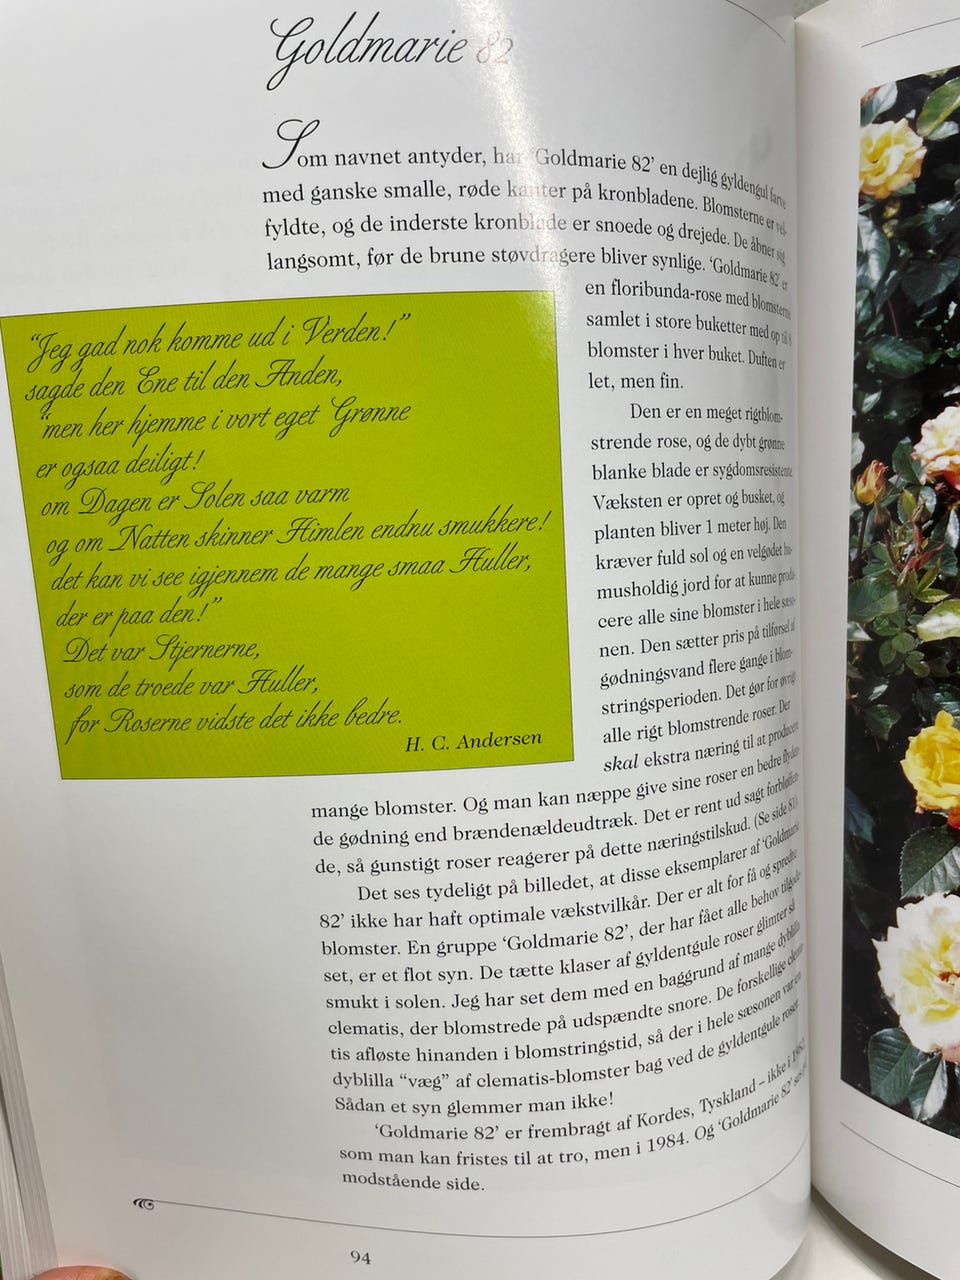 Goldmarie 82
Som navnet antyder, har 'Goldmarie 82' en dejlig gyldengul farve
med ganske smalle, røde kanter på kronbladene. Blomsterne er vel-
fyldte, og de inderste kronblade er snoede og drejede. De åbner sig
langsomt, før de brune støvdragere bliver synlige. 'Goldmarie 82' er
en floribunda-rose med blomsterne
samlet i store buketter med op til 8
blomster i hver buket. Duften er
let, men fin.
Den er en meget rigtblom-
strende rose, og de dybt grønne
blanke blade er sygdomsresistente.
Væksten er opret og busket, og
planten bliver 1 meter høj. Den
kræver fuld sol og en velgødet hu-
musholdig jord for at kunne produ-
cere alle sine blomster i hele sæso-
nen. Den sætter pris på tilførsel af
gødningsvand flere gange i blom-
stringsperioden. Det gør for øvrigt
alle rigt blomstrende roser. Der
skal ekstra næring til at producere
mange blomster. Og man kan næppe give sine roser en bedre flyden-
de gødning end brændenældeudtræk. Det er rent ud sagt forbløffen-
de, så gunstigt roser reagerer på dette næringstilskud. (Se side 81).
Det ses tydeligt på billedet, at disse eksemplarer af 'Goldmarie
82' ikke har haft optimale vækstvilkår. Der er alt for få og spredte
blomster. En gruppe 'Goldmarie 82', der har fået alle behov tilgode-
set, er et flot syn. De tætte klaser af gyldentgule roser glimter så
smukt i solen. Jeg har set dem med en baggrund af mange dyblilla
clematis, der blomstrede på udspændte snore. De forskellige clema-
tis afløste hinanden i blomstringstid, så der i hele sæsonen var en
dyblilla "væg" af clematis-blomster bag ved de gyldentgule roser.
Sådan et syn glemmer man ikke!
'Goldmarie 82' er frembragt af Kordes, Tyskland – ikke i 1982,
som man kan fristes til at tro, men i 1984. Og 'Goldmarie 82' ses på
modstående side.
"Jeg gad nok komme ud i Verden!"
sagde den Ene til den Anden,
"men her hjemme i vort eget Grønne
er ogsaa deiligt!
om Dagen er Solen saa varm
og om Natten skinner Himlen endnu smukkere!
det kan vi see igjennem de mange smaa Huller,
der er paa den!"
Det var Stjernerne,
som de troede var Huller,
for Roserne vidste det ikke bedre.
H. C. Andersen
94